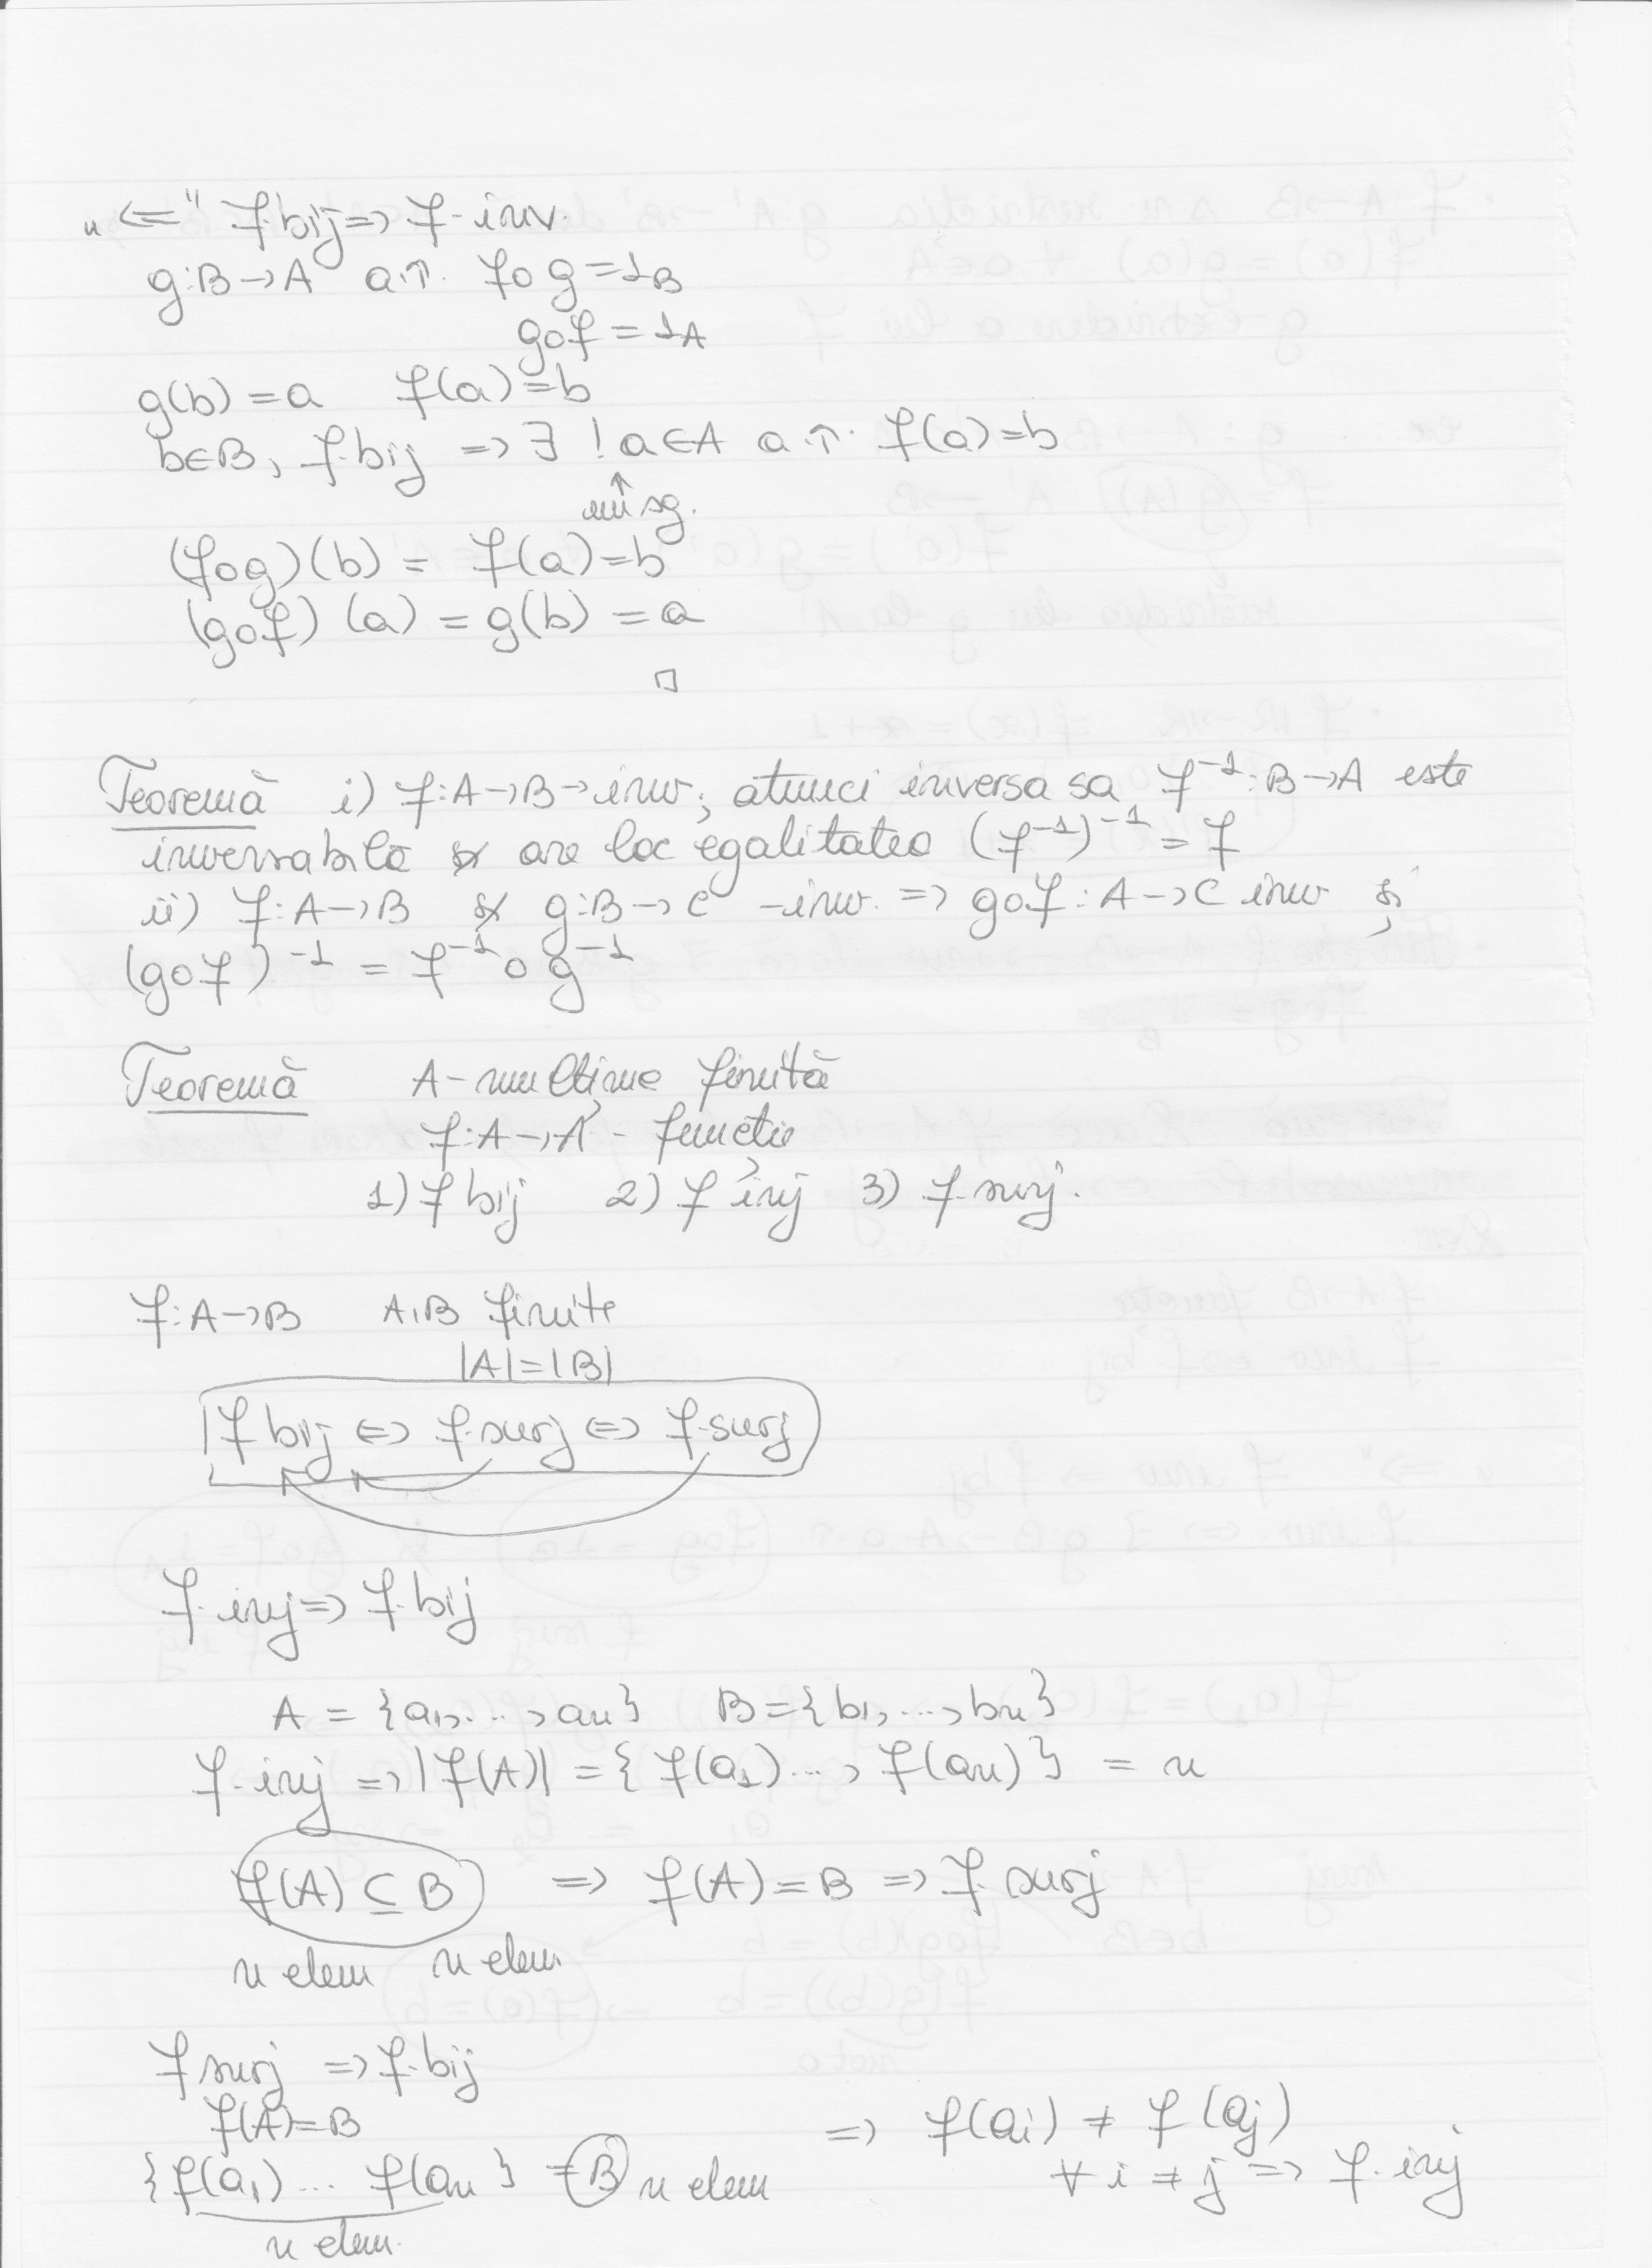 „<=" f bij => f inv.
g:B→A a.î. f∘g=1_B
g∘f=1_A
g(b)=a f(a)=b
b∈B, f bij => ∃! a∈A a.î. f(a)=b
↑
unic sg.
(f∘g)(b) = f(a)=b
(g∘f)(a) = g(b) = a
□
Teoremă i) f:A→B→inv; atunci inversa sa f⁻¹:B→A este
inversabilă și are loc egalitatea (f⁻¹)⁻¹ = f
ii) f:A→B și g:B→C -inv. => g∘f:A→C inv și
(g∘f)⁻¹ = f⁻¹∘g⁻¹
Teoremă A-mulțime finită
f:A→A - funcție
1) f bij 2) f inj 3) f surj.
f:A→B A,B finite
|A|=|B|
f bij <=> f surj <=> f surj
f inj => f bij
A = {a₁,...,aₙ} B={b₁,...,bₙ}
f inj => |f(A)| = {f(a₁)..., f(aₙ)} = n
f(A) ⊆ B => f(A)=B => f surj
n elem n elem
f surj => f bij
f(A)=B => f(ai) ≠ f(aj)
{f(a₁)... f(aₙ} = B n elem ∀ i ≠ j => f inj
n elem.